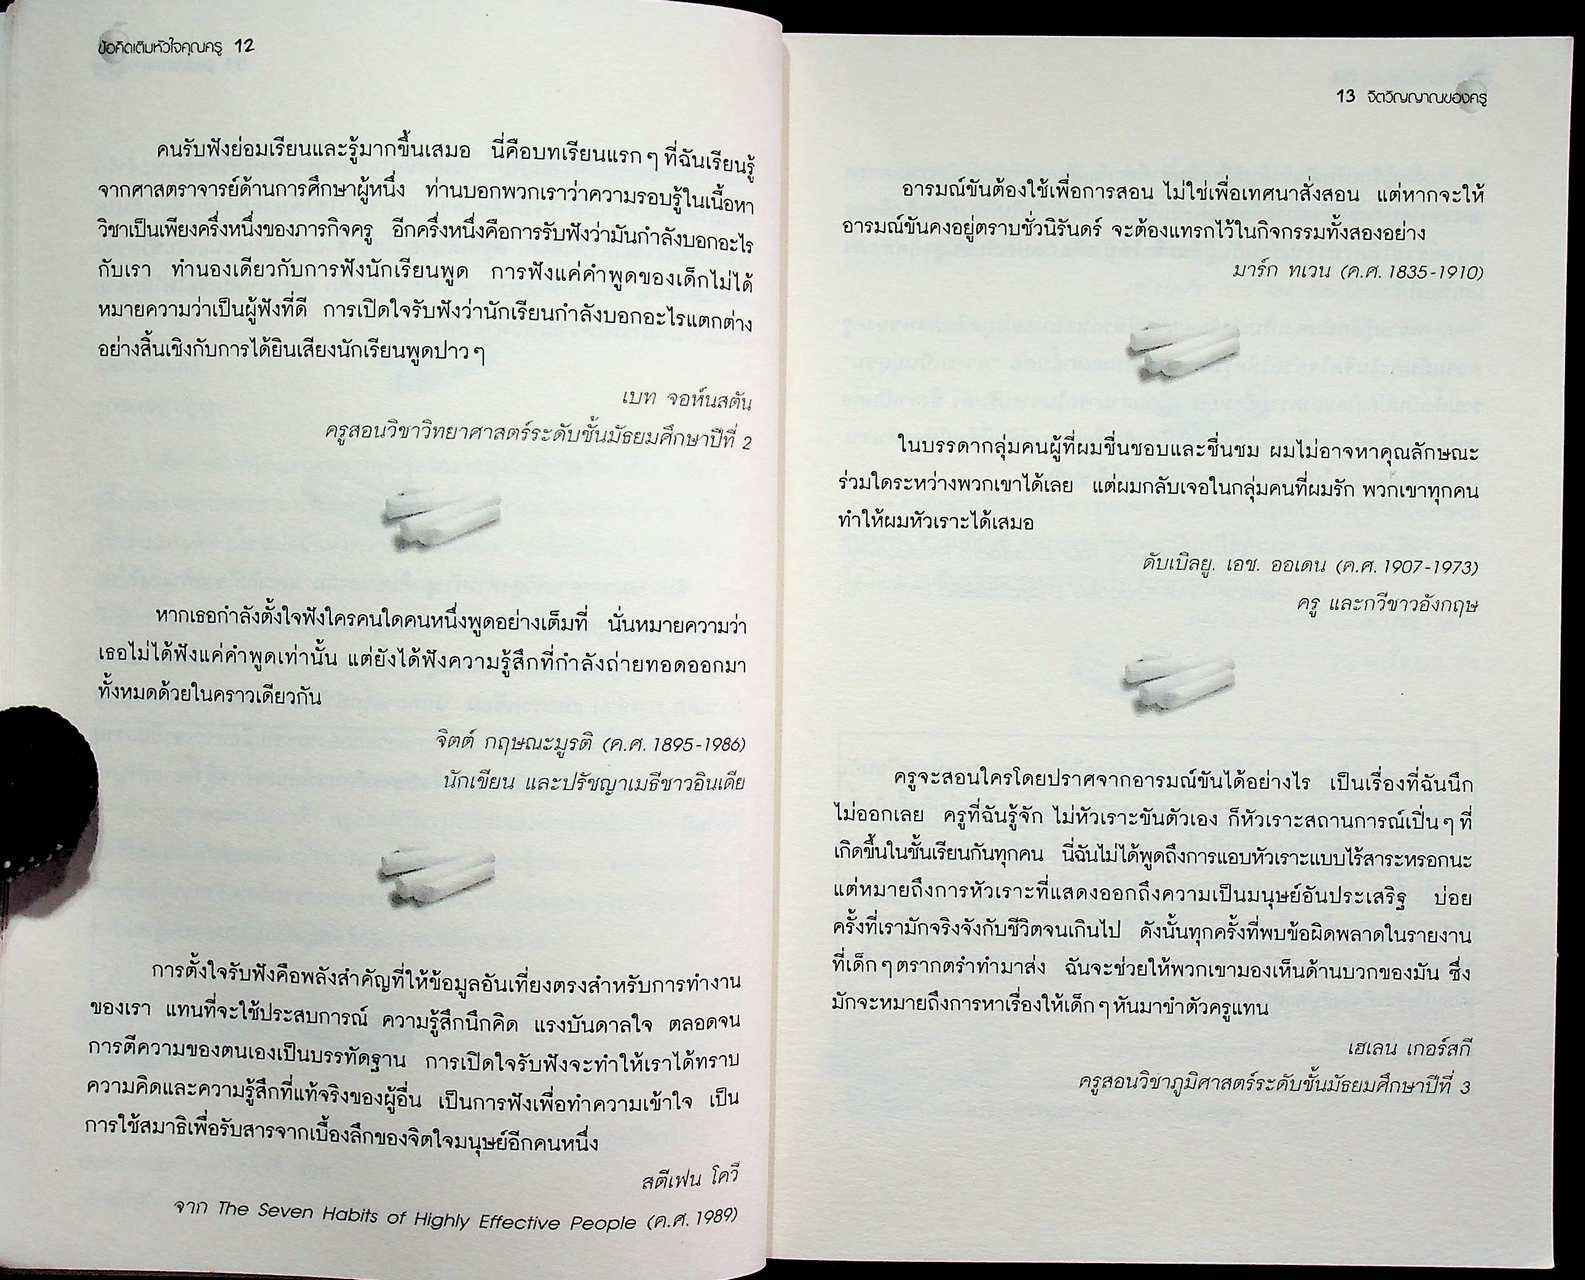 ข้อคิดเติมหัวใจคุณครู 12
คนรับฟังย่อมเรียนและรู้มากขึ้นเสมอ นี่คือบทเรียนแรกๆ ที่ฉันเรียนรู้
จากศาสตราจารย์ด้านการศึกษาผู้หนึ่ง ท่านบอกพวกเราว่าความรอบรู้ในเนื้อหา
วิชาเป็นเพียงครึ่งหนึ่งของภารกิจครู อีกครึ่งหนึ่งคือการรับฟังว่ามันกำลังบอกอะไร
กับเรา ทำนองเดียวกับการฟังนักเรียนพูด การฟังแค่คำพูดของเด็กไม่ได้
หมายความว่าเป็นผู้ฟังที่ดี การเปิดใจรับฟังว่านักเรียนกำลังบอกอะไรแตกต่าง
อย่างสิ้นเชิงกับการได้ยินเสียงนักเรียนพูดปาวๆ
เบท จอห์นสตัน
ครูสอนวิชาวิทยาศาสตร์ระดับชั้นมัธยมศึกษาปีที่ 2
หากเธอกำลังตั้งใจฟังใครคนใดคนหนึ่งพูดอย่างเต็มที่ นั่นหมายความว่า
เธอไม่ได้ฟังแค่คำพูดเท่านั้น แต่ยังได้ฟังความรู้สึกที่กำลังถ่ายทอดออกมา
ทั้งหมดด้วยในคราวเดียวกัน
จิตต์ กฤษณะมูรติ (ค.ศ. 1895-1986)
นักเขียน และปรัชญาเมธีชาวอินเดีย
การตั้งใจรับฟังคือพลังสำคัญที่ให้ข้อมูลอันเที่ยงตรงสำหรับการทำงาน
ของเรา แทนที่จะใช้ประสบการณ์ ความรู้สึกนึกคิด แรงบันดาลใจ ตลอดจน
การตีความของตนเองเป็นบรรทัดฐาน การเปิดใจรับฟังจะทำให้เราได้ทราบ
ความคิดและความรู้สึกที่แท้จริงของผู้อื่น เป็นการฟังเพื่อทำความเข้าใจ เป็น
การใช้สมาธิเพื่อรับสารจากเบื้องลึกของจิตใจมนุษย์อีกคนหนึ่ง
สตีเฟน โควี
จาก The Seven Habits of Highly Effective People (ค.ศ. 1989)
13 จิตวิญญาณของครู
อารมณ์ขันต้องใช้เพื่อการสอน ไม่ใช่เพื่อเทศนาสั่งสอน แต่หากจะให้
อารมณ์ขันคงอยู่ตราบชั่วนิรันดร์ จะต้องแทรกไว้ในกิจกรรมทั้งสองอย่าง
มาร์ก ทเวน (ค.ศ. 1835-1910)
ในบรรดากลุ่มคนผู้ที่ผมชื่นชอบและชื่นชม ผมไม่อาจหาคุณลักษณะ
ร่วมใดระหว่างพวกเขาได้เลย แต่ผมกลับเจอในกลุ่มคนที่ผมรัก พวกเขาทุกคน
ทำให้ผมหัวเราะได้เสมอ
ดับเบิลยู. เอช. ออเดน (ค.ศ. 1907-1973)
ครู และกวีชาวอังกฤษ
ครูจะสอนใครโดยปราศจากอารมณ์ขันได้อย่างไร เป็นเรื่องที่ฉันนึก
ไม่ออกเลย ครูที่ฉันรู้จัก ไม่หัวเราะขันตัวเอง ก็หัวเราะสถานการณ์เปิ่นๆ ที่
เกิดขึ้นในชั้นเรียนกันทุกคน นี่ฉันไม่ได้พูดถึงการแอบหัวเราะแบบไร้สาระหรอกนะ
แต่หมายถึงการหัวเราะที่แสดงออกถึงความเป็นมนุษย์อันประเสริฐ บ่อย
ครั้งที่เรามักจริงจังกับชีวิตจนเกินไป ดังนั้นทุกครั้งที่พบข้อผิดพลาดในรายงาน
ที่เด็กๆ ตรากตรำทำมาส่ง ฉันจะช่วยให้พวกเขามองเห็นด้านบวกของมัน ซึ่ง
มักจะหมายถึงการหาเรื่องให้เด็กๆ หันมาขำตัวครูแทน
เฮเลน เกอร์สกี
ครูสอนวิชาภูมิศาสตร์ระดับชั้นมัธยมศึกษาปีที่ 3